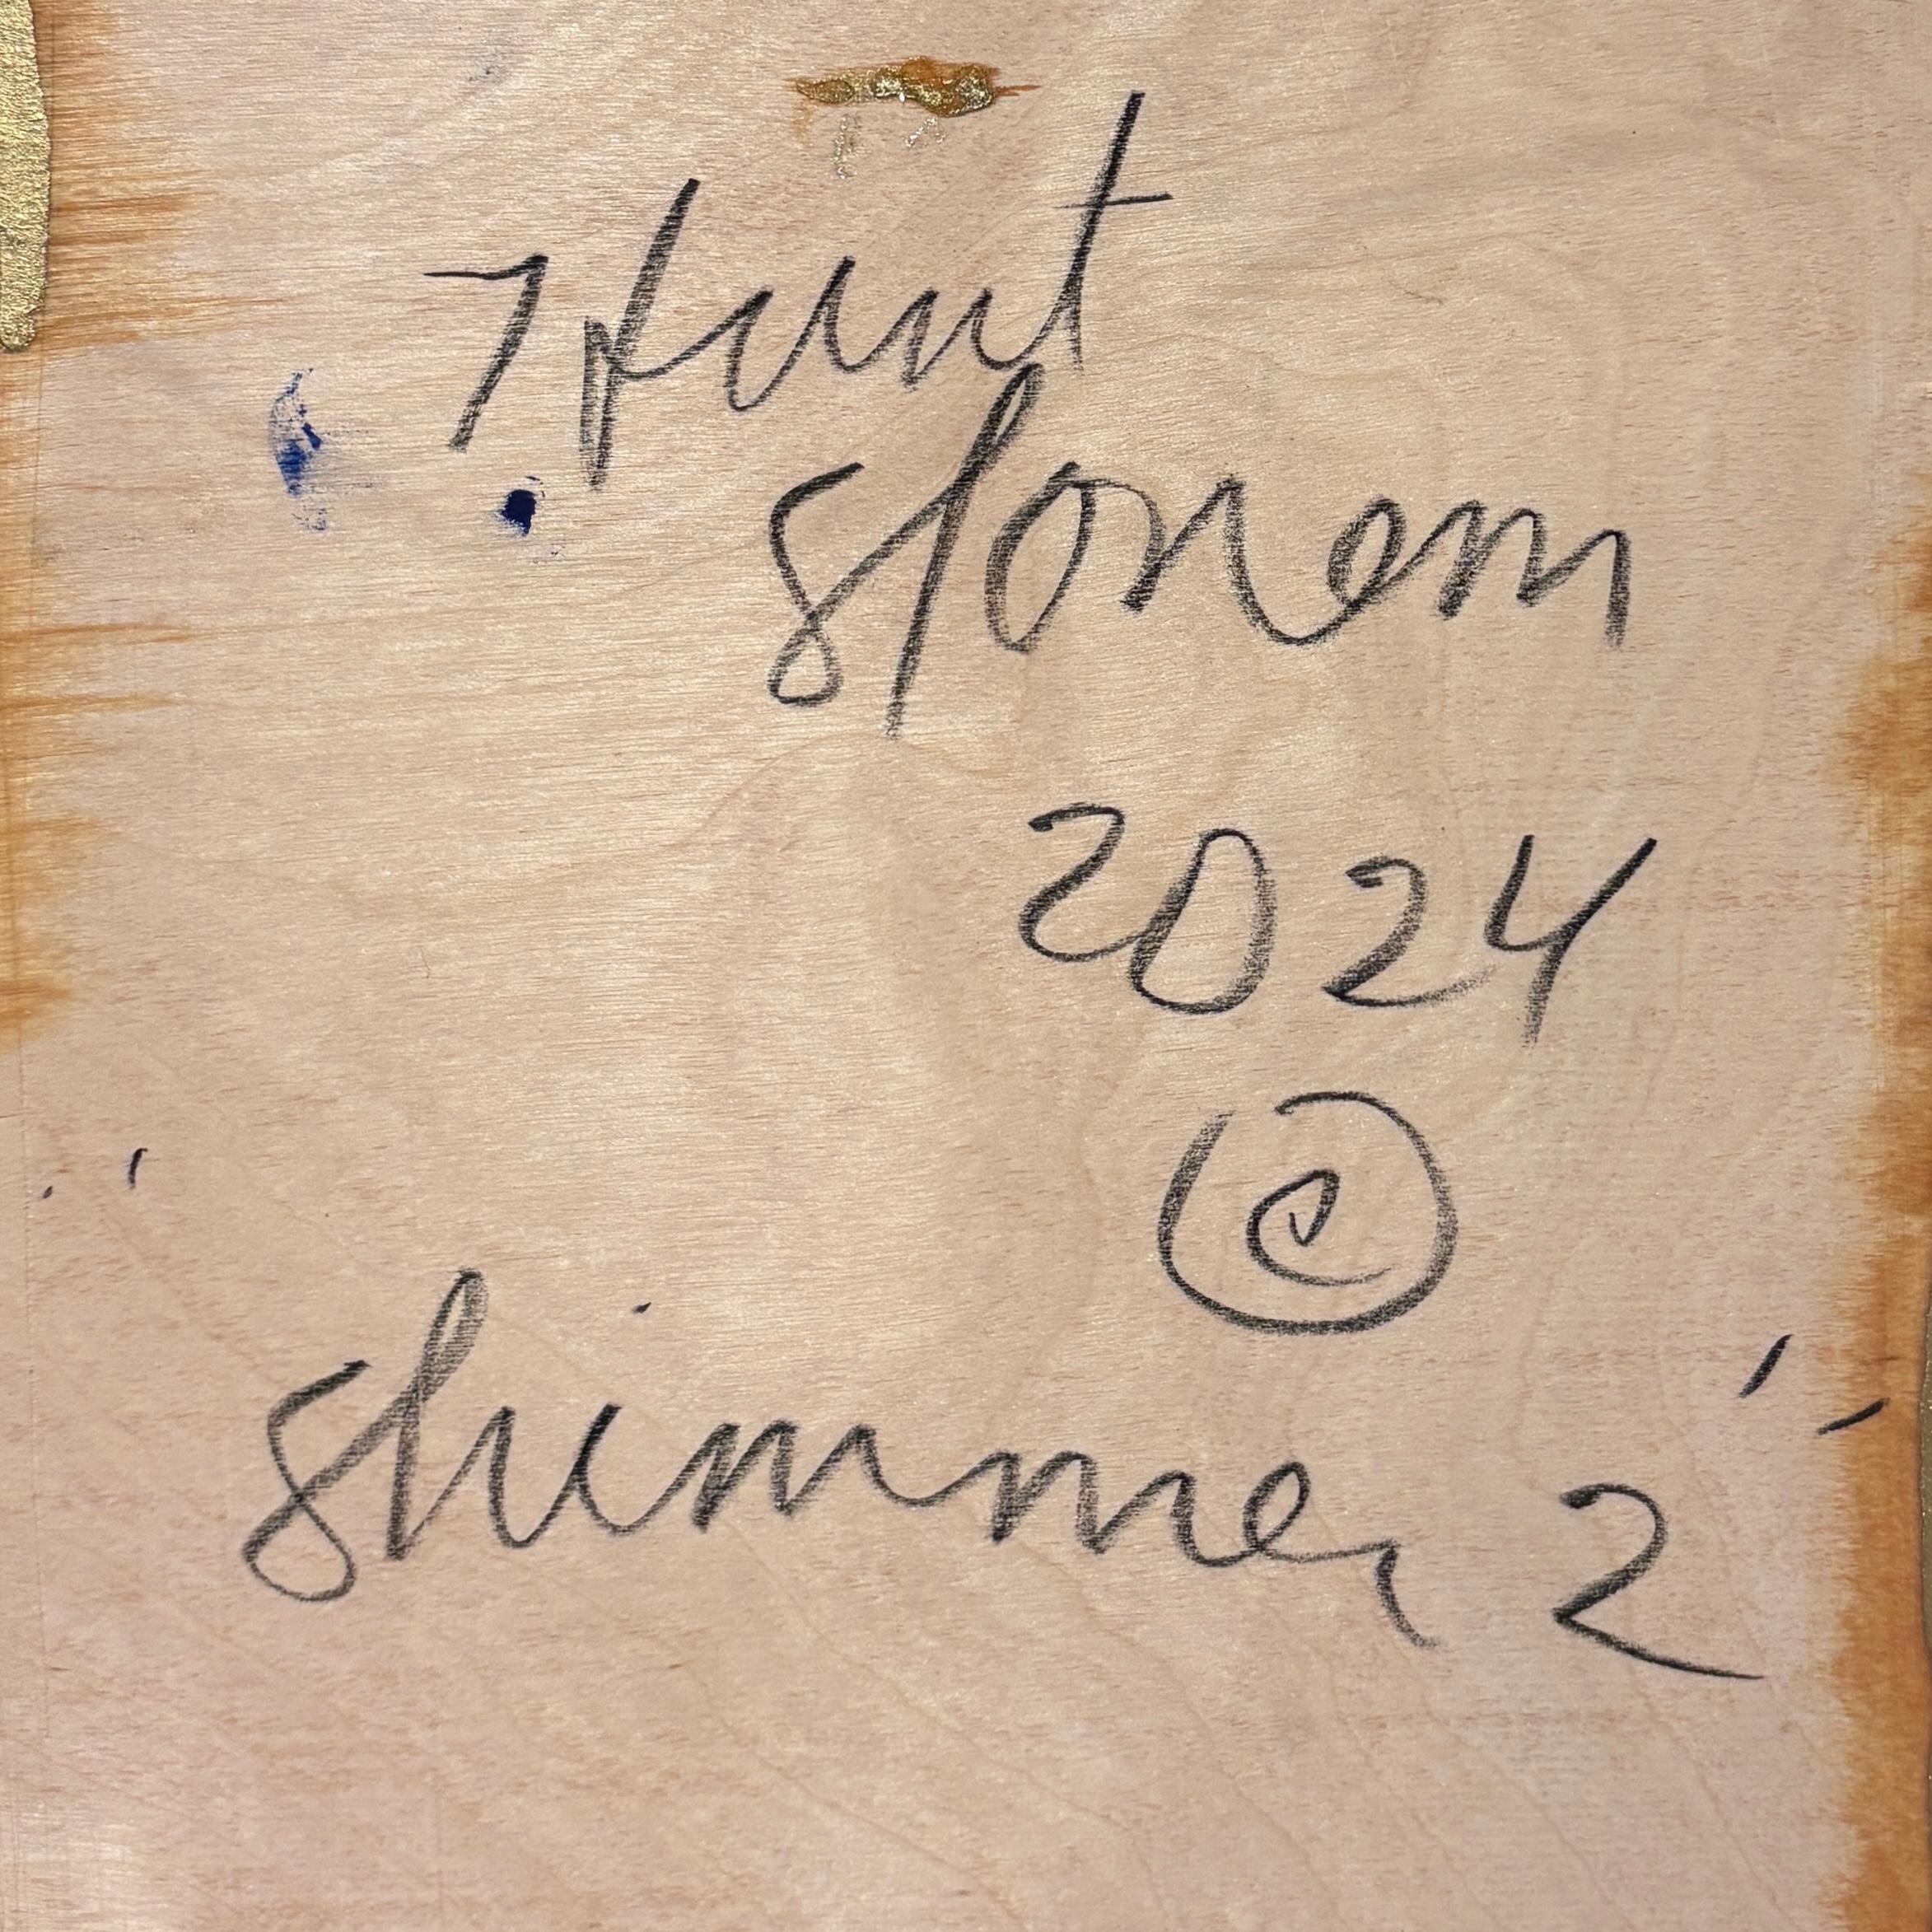 Hunt
Slonem
2024
©
"Shimmer 2"